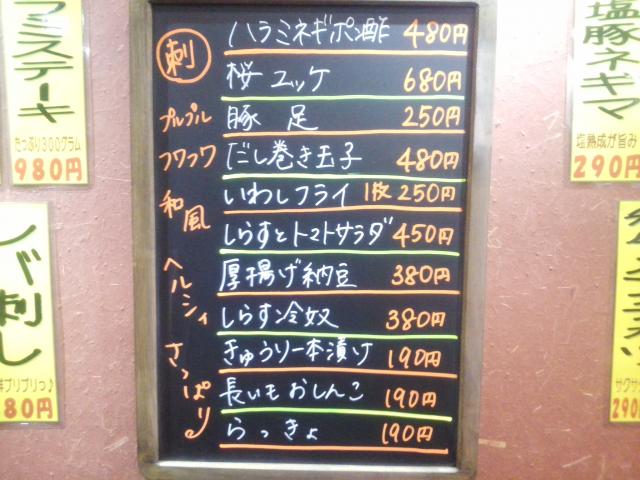 ラミステーキ
たっぷり300グラム
980円
レバ刺し
プリプリっ♪
80円
刺
ハラミネギポン酢 480円
桜ユッケ 680円
プルプル 豚足 250円
フワフワ だし巻き玉子 480円
和風 いわしフライ 1枚 250円
しらすとトマトサラダ 450円
ヘルシィ 厚揚げ納豆 380円
しらす冷奴 380円
さっぱり きゅうり一本漬け 190円
長いもおしんこ 190円
らっきょ 190円
塩豚ネギマ
塩熟成が旨み
290円
サクサク
290